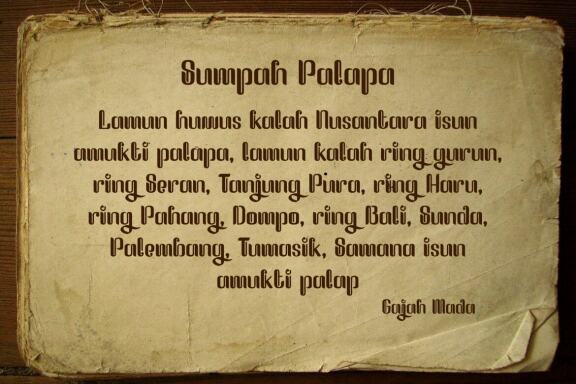 Sumpah Palapa
Lamun huwus kalah Nusantara isun
amukti palapa, lamun kalah ring gurun,
ring Seran, Tanjung Pura, ring Haru,
ring Pahang, Dompo, ring Bali, Sunda,
Palembang, Tumasik, Samana isun
amukti palap
Gajah Mada